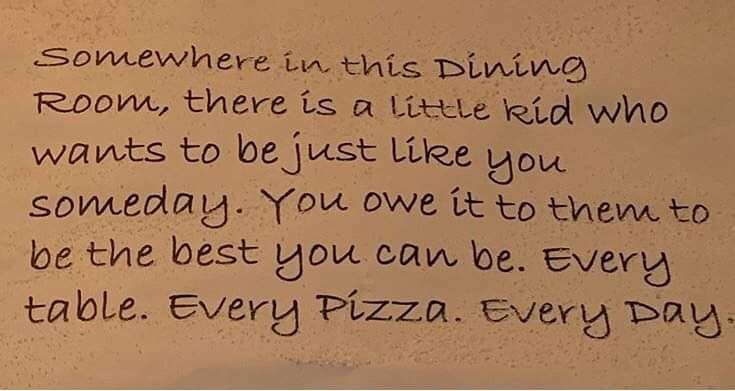 Somewhere in this Dining
Room, there is a little kid who
wants to be just like you
someday. You owe it to them to
be the best you can be. Every
table. Every Pizza. Every Day.